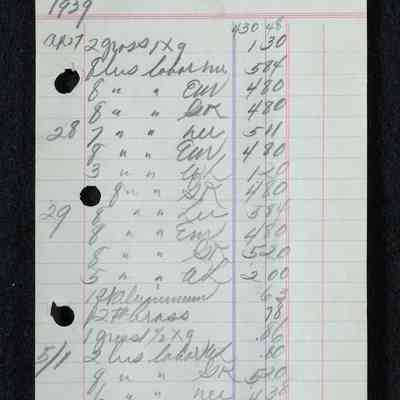 1939
430 48
Apr 27 2 gross 1 x 9 1 30
8 hrs labor Lu 5 84
8 " " Em 4 80
8 " " Geo 4 80
28 7 " " Lu 5 11
8 " " Em 4 80
3 " " 1 20
8 " " 4 80
29 8 " " Lu 5 84
8 " " Em 4 80
8 " " 5 20
5 " " al 2 00
1# aluminum 63
2# brass 78
1 gross 1/2 x 9 .86
5/1 2 hrs labor al .80
8 " " 5 20
" " Lu 4 38